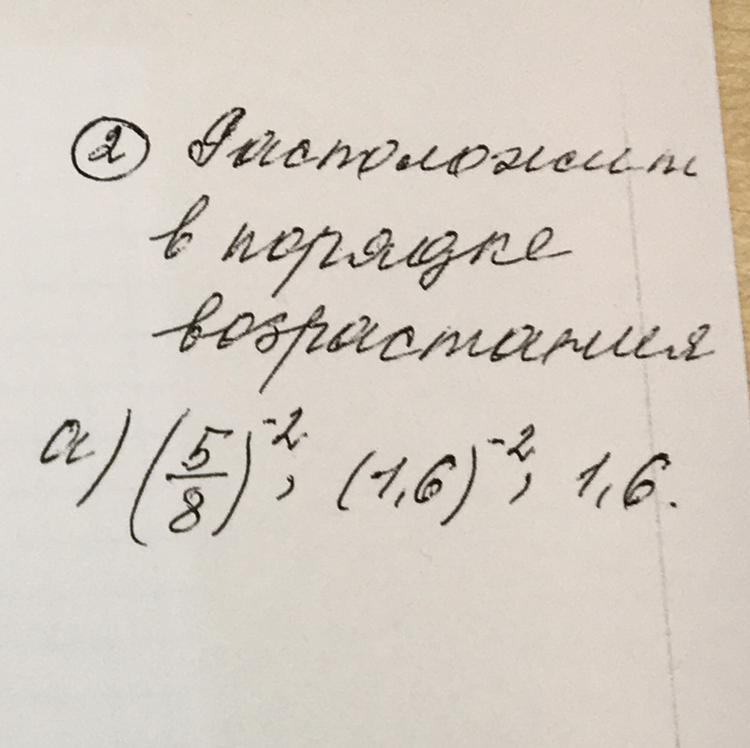 ② Расположит
в порядке
возрастания
а) (5/8)^-2; (1,6)^-2; 1,6.